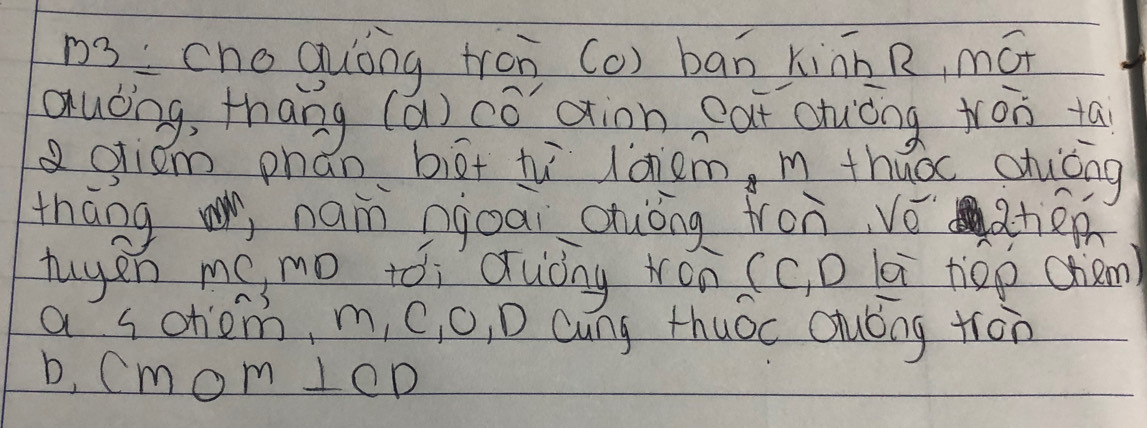 B3: Cho đường tròn (O) bán kính R, một
đường thẳng (d) cố định cắt đường tròn tại
2 điểm phân biệt từ 1 điểm M thuộc đường
thẳng, nằm ngoài đường tròn. Vẽ 2 tiếp
tuyến MC, MD tới đường tròn (C, D là tiếp điểm)
a 4 điểm, M, C, O, D cùng thuộc đường tròn
b, CM OM ⊥ CD